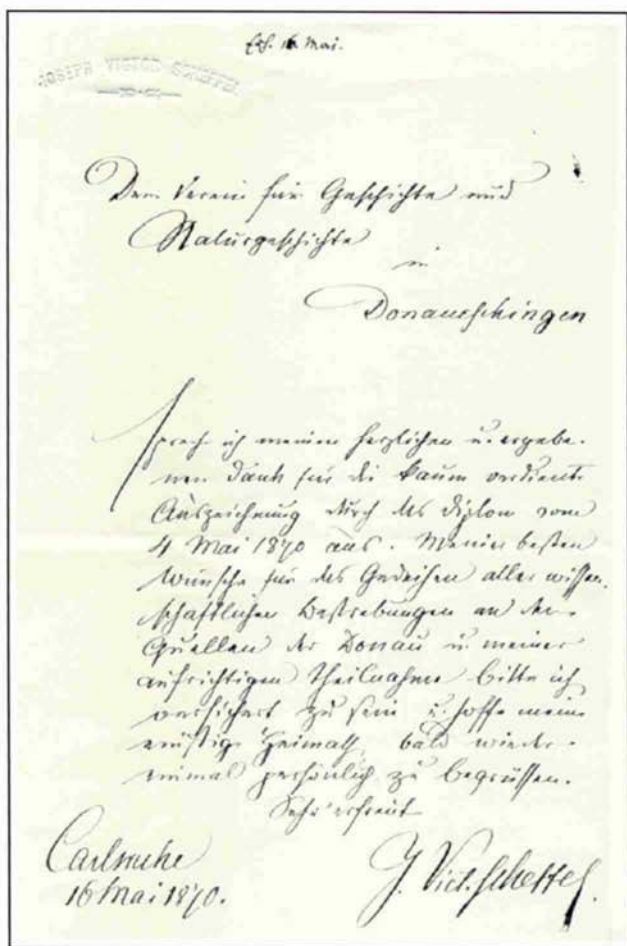 Erh. 16. Mai.
JOSEPH VICTOR SCHEFFEL
Dem Verein für Geschichte und
Naturgeschichte
in
Donaueschingen
Sprech ich meinen herzlichen u. ergebe-
nen Dank für die kaum verdiente
Auszeichnung durch das Diplom vom
4 Mai 1870 aus. Meiner besten
Wünsche für das Gedeihen aller wissen-
schaftlichen Bestrebungen an den
Quellen der Donau u. meiner
aufrichtigen Theilnahme bitte ich
versichert zu sein u. hoffe meine
Heimath, bald wieder
einmal persönlich zu begrüssen.
Sehr erfreut
Carlsruhe
16 Mai 1870.
J. Vict. Scheffel.